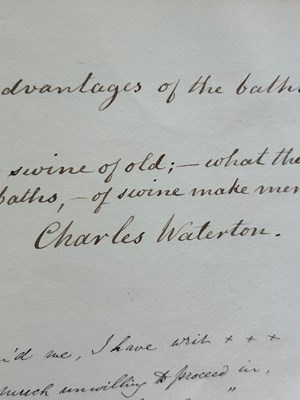 advantages of the baths
swine of old;—what the
baths,—of swine make men
Charles Waterton.
i'd me, I have writ + + +
much unwilling to proceed in,